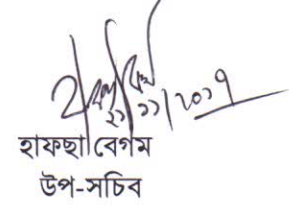 ২১/১১/২০১৭
হাফছা বেগম
উপ-সচিব